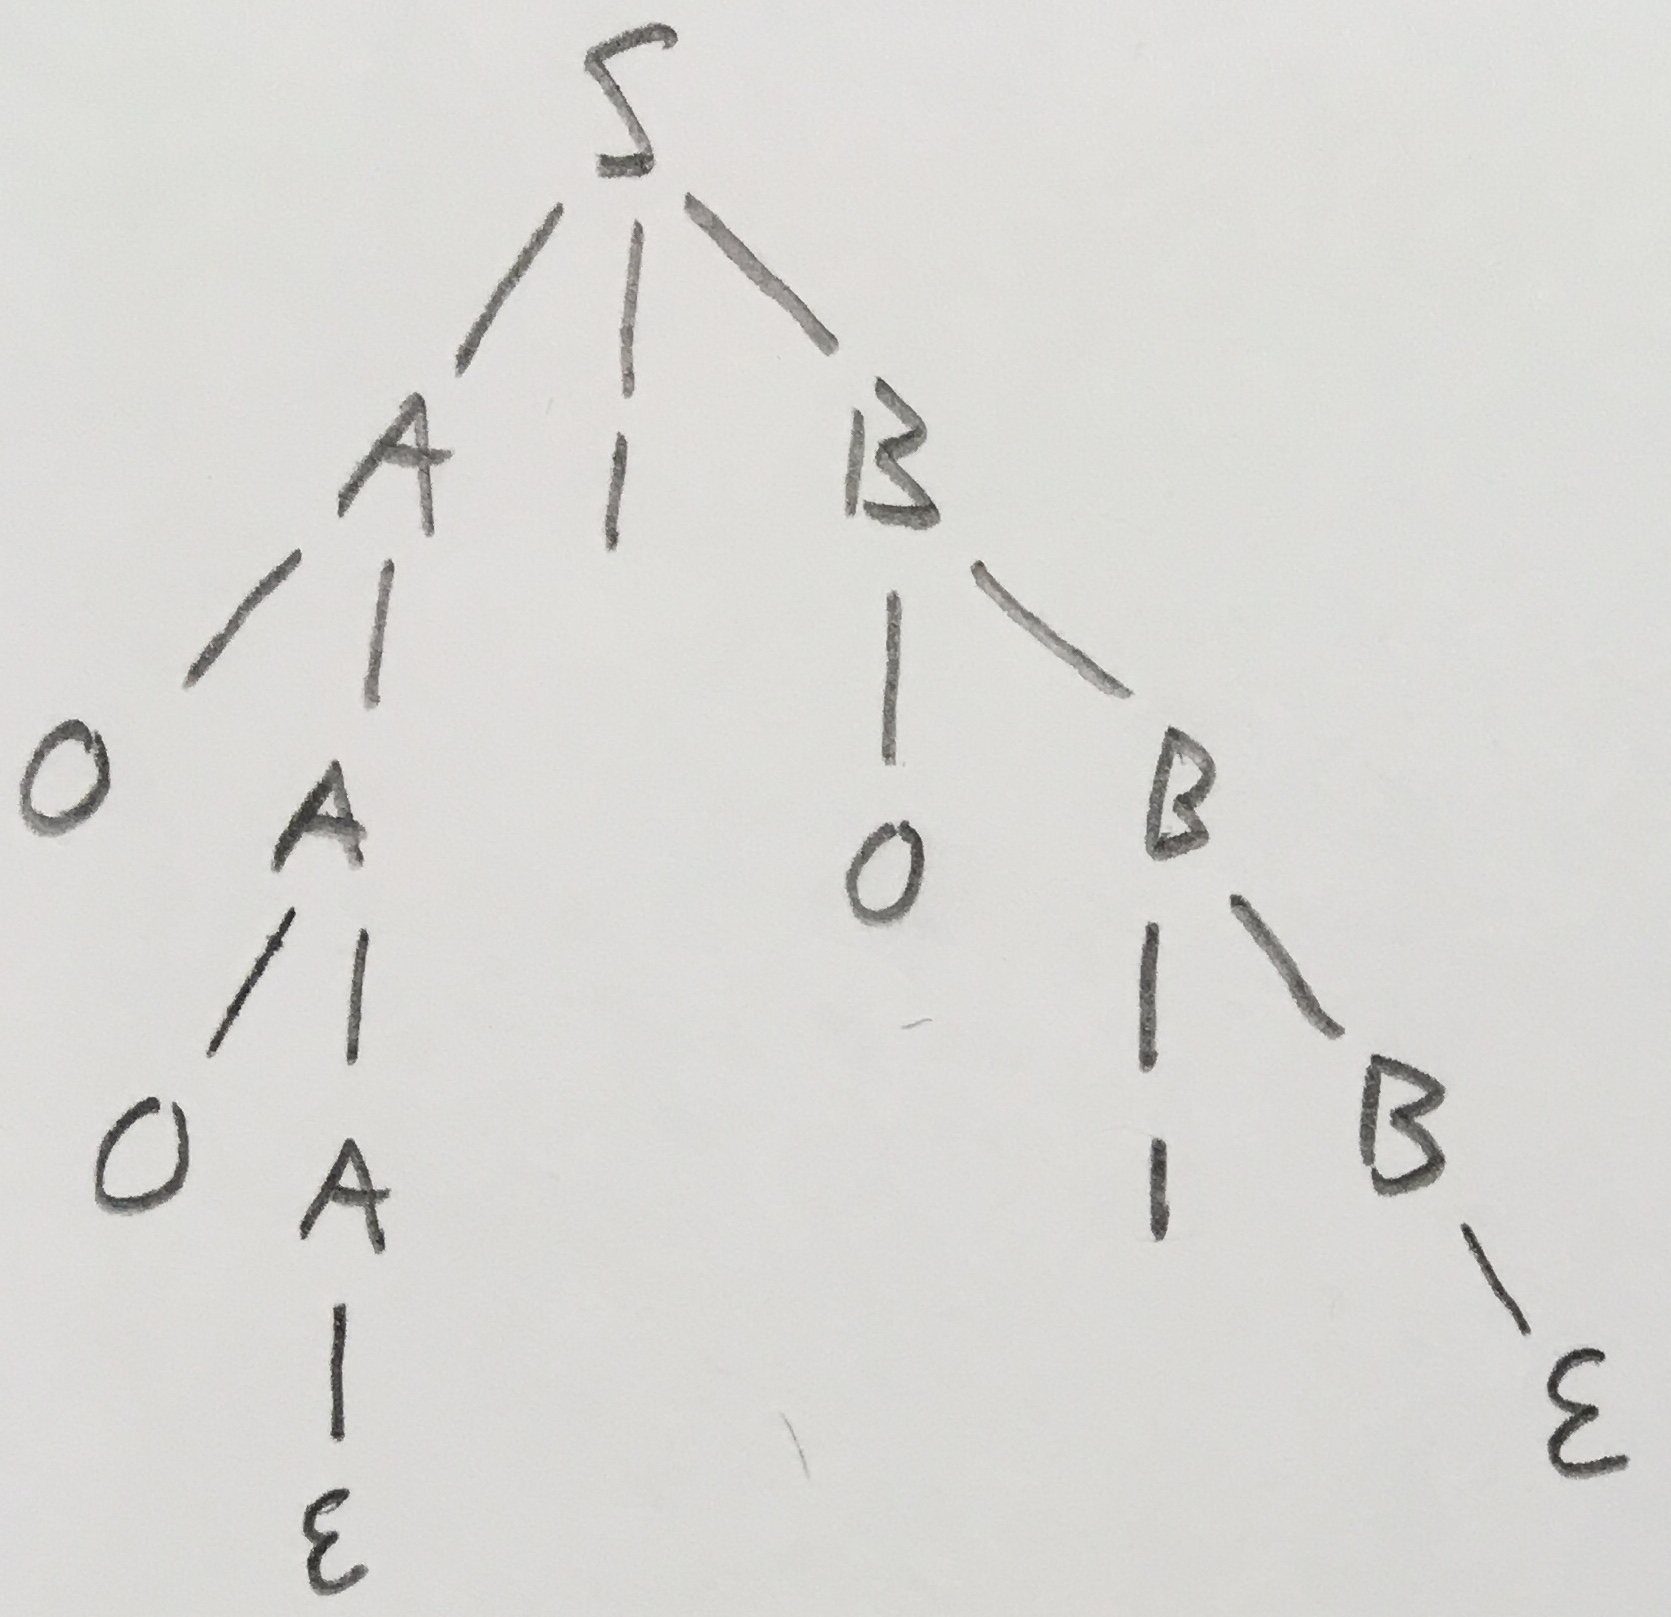 S
A 1 B
0 A 0 B
0 A 1 B
ε ε